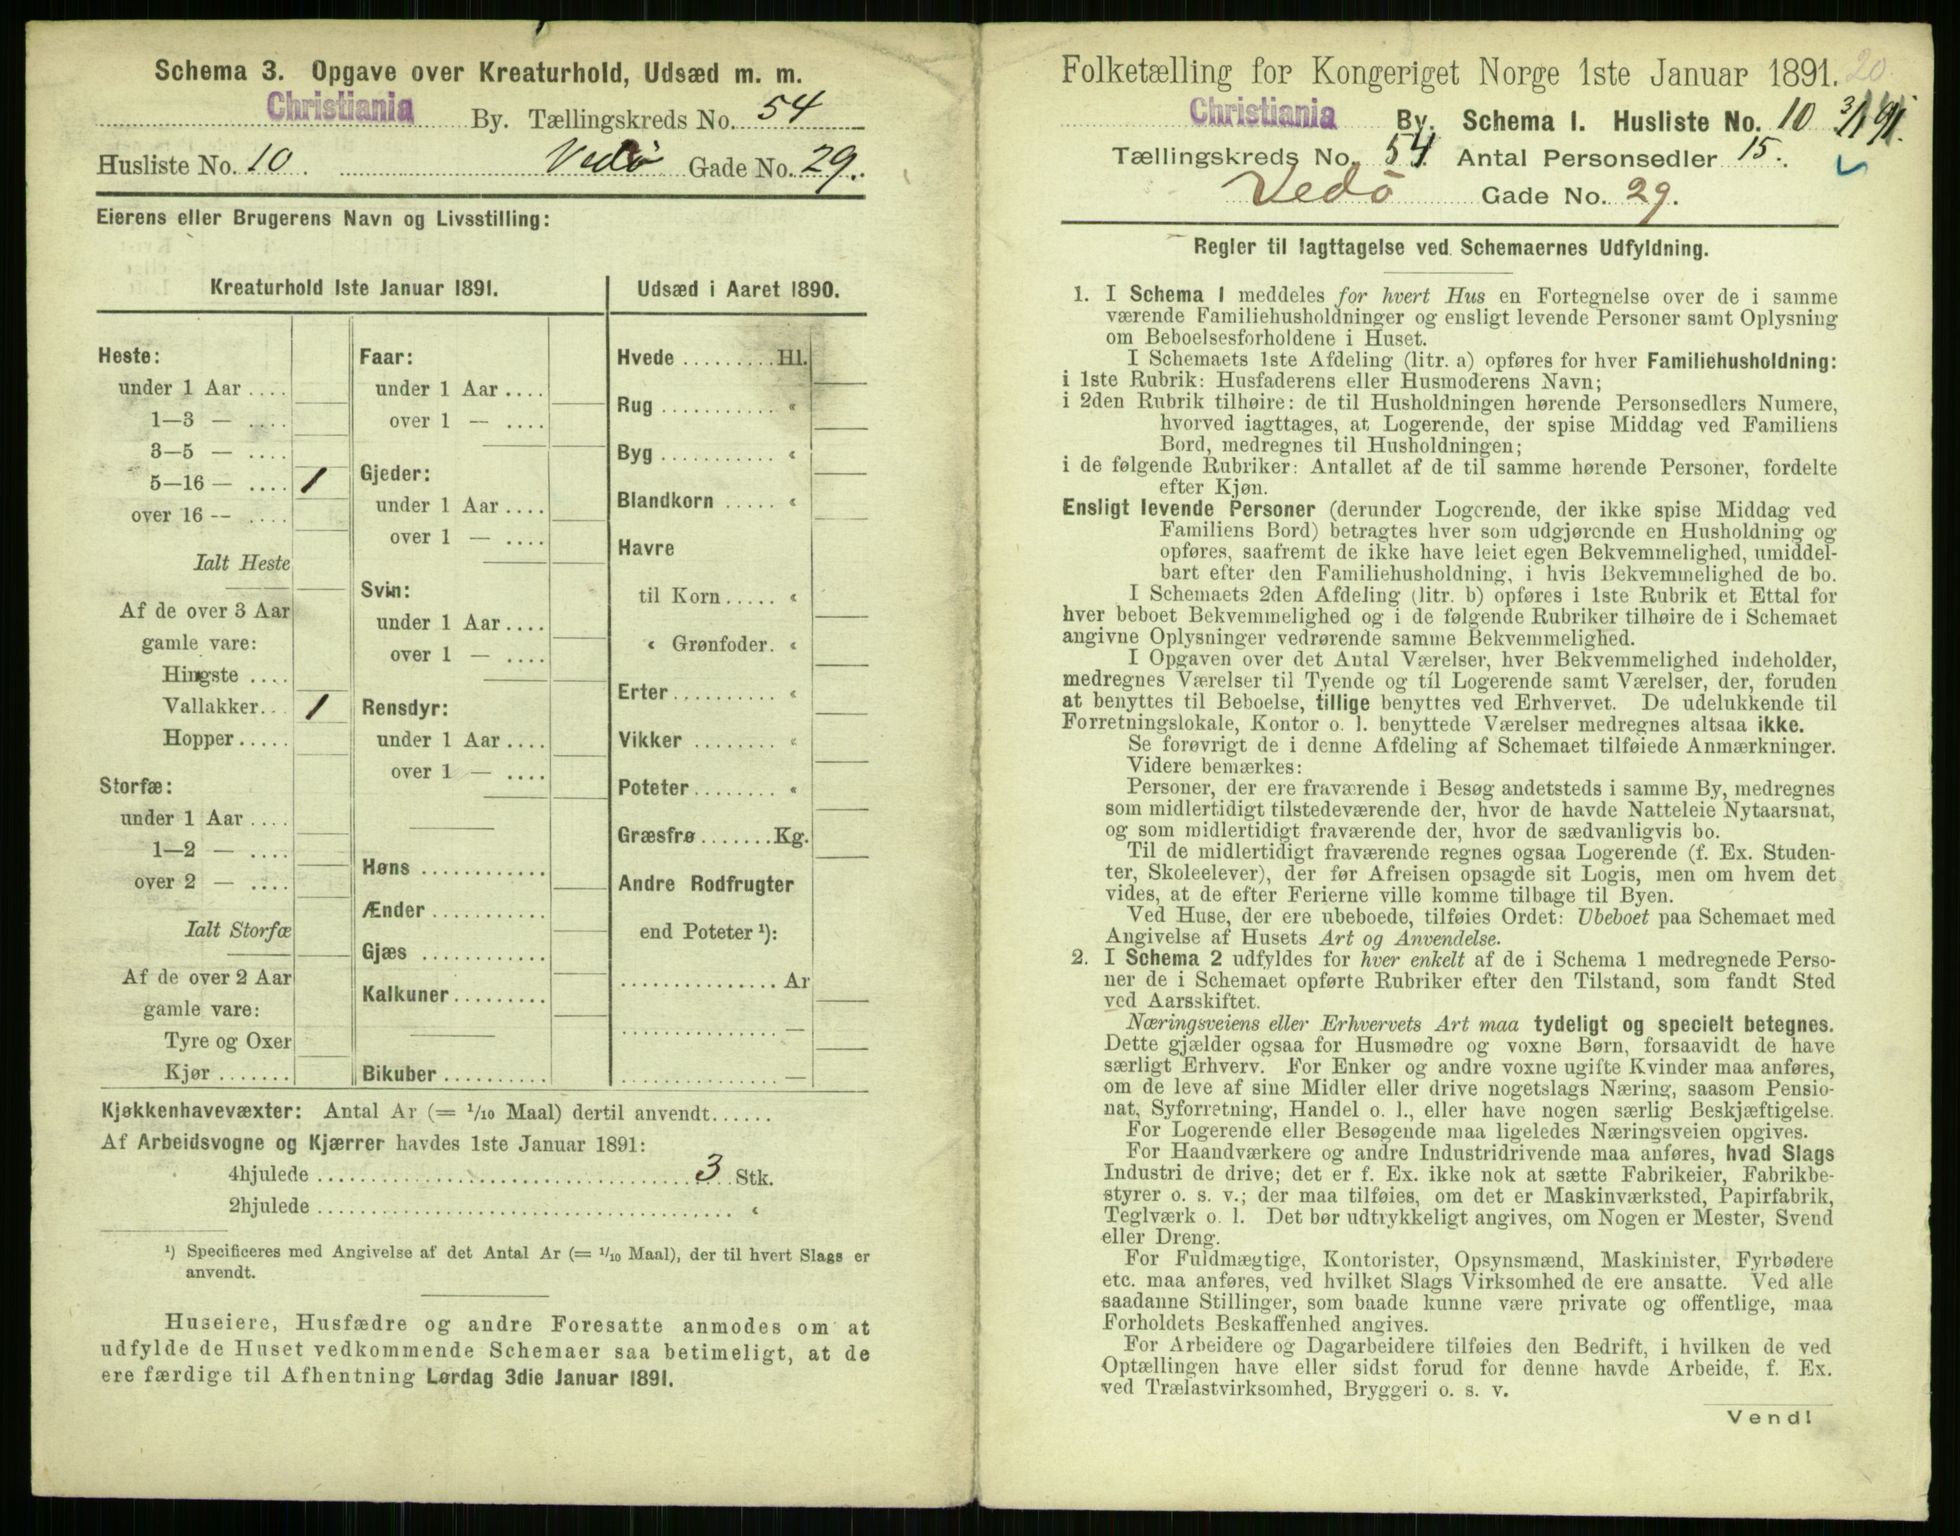 Schema 3. Opgave over Kreaturhold, Udsæd m. m.
Christiania By. Tællingskreds No. 54
Husliste No. 10. Vedø Gade No. 29.
Eierens eller Brugerens Navn og Livsstilling:
Kreaturhold 1ste Januar 1891.
Heste:
under 1 Aar ....
1—3 — ....
3—5 — ....
5—16 — .... 1
over 16 -- ....
Ialt Heste
Af de over 3 Aar
gamle vare:
Hingste ....
Vallakker.. 1
Hopper.....
Storfæ:
under 1 Aar ....
1—2 — ....
over 2 — ....
Ialt Storfæ
Af de over 2 Aar
gamle vare:
Tyre og Oxer
Kjør.......
Faar:
under 1 Aar ....
over 1 — ....
Gjeder:
under 1 Aar ....
over 1 — ....
Svin:
under 1 Aar ....
over 1 — ....
Rensdyr:
under 1 Aar ....
over 1 — ....
Høns ............
Ænder ..........
Gjæs ............
Kalkuner.........
Bikuber ..........
Udsæd i Aaret 1890.
Hvede .........Hl.
Rug .......... «
Byg ........... «
Blandkorn ..... «
Havre
til Korn..... «
« Grønfoder. «
Erter.......... «
Vikker ........ «
Poteter........ «
Græsfrø.......Kg.
Andre Rodfrugter
end Poteter ¹):
............... Ar
............... —
............... —
Kjøkkenhavevæxter: Antal Ar (= 1/10 Maal) dertil anvendt......
Af Arbeidsvogne og Kjærrer havdes 1ste Januar 1891:
4hjulede .................................. 3 Stk.
2hjulede .................................. «
¹) Specificeres med Angivelse af det Antal Ar (= 1/10 Maal), der til hvert Slags er
anvendt.
Huseiere, Husfædre og andre Foresatte anmodes om at
udfylde de Huset vedkommende Schemaer saa betimeligt, at de
ere færdige til Afhentning Lørdag 3die Januar 1891.
Folketælling for Kongeriget Norge 1ste Januar 1891. 20
Christiania By. Schema I. Husliste No. 10 3/1 91.
Tællingskreds No. 54 Antal Personsedler 15.
Vedø Gade No. 29.
Regler til Iagttagelse ved Schemaernes Udfyldning.
1. I Schema I meddeles for hvert Hus en Fortegnelse over de i samme
værende Familiehusholdninger og ensligt levende Personer samt Oplysning
om Beboelsesforholdene i Huset.
I Schemaets 1ste Afdeling (litr. a) opføres for hver Familiehusholdning:
i 1ste Rubrik: Husfaderens eller Husmoderens Navn;
i 2den Rubrik tilhøire: de til Husholdningen hørende Personsedlers Numere,
hvorved iagttages, at Logerende, der spise Middag ved Familiens
Bord, medregnes til Husholdningen;
i de følgende Rubriker: Antallet af de til samme hørende Personer, fordelte
efter Kjøn.
Ensligt levende Personer (derunder Logerende, der ikke spise Middag ved
Familiens Bord) betragtes hver som udgjørende en Husholdning og
opføres, saafremt de ikke have leiet egen Bekvemmelighed, umiddel-
bart efter den Familiehusholdning, i hvis Bekvemmelighed de bo.
I Schemaets 2den Afdeling (litr. b) opføres i 1ste Rubrik et Ettal for
hver beboet Bekvemmelighed og i de følgende Rubriker tilhøire de i Schemaet
angivne Oplysninger vedrørende samme Bekvemmelighed.
I Opgaven over det Antal Værelser, hver Bekvemmelighed indeholder,
medregnes Værelser til Tyende og til Logerende samt Værelser, der, foruden
at benyttes til Beboelse, tillige benyttes ved Erhvervet. De udelukkende til
Forretningslokale, Kontor o. l. benyttede Værelser medregnes altsaa ikke.
Se forøvrigt de i denne Afdeling af Schemaet tilføiede Anmærkninger.
Videre bemærkes:
Personer, der ere fraværende i Besøg andetsteds i samme By, medregnes
som midlertidigt tilstedeværende der, hvor de havde Natteleie Nytaarsnat,
og som midlertidigt fraværende der, hvor de sædvanligvis bo.
Til de midlertidigt fraværende regnes ogsaa Logerende (f. Ex. Studen-
ter, Skoleelever), der før Afreisen opsagde sit Logis, men om hvem det
vides, at de efter Ferierne ville komme tilbage til Byen.
Ved Huse, der ere ubeboede, tilføies Ordet: Ubeboet paa Schemaet med
Angivelse af Husets Art og Anvendelse.
2. I Schema 2 udfyldes for hver enkelt af de i Schema 1 medregnede Perso-
ner de i Schemaet opførte Rubriker efter den Tilstand, som fandt Sted
ved Aarsskiftet.
Næringsveiens eller Erhvervets Art maa tydeligt og specielt betegnes.
Dette gjælder ogsaa for Husmødre og voxne Børn, forsaavidt de have
særligt Erhverv. For Enker og andre voxne ugifte Kvinder maa anføres,
om de leve af sine Midler eller drive nogetslags Næring, saasom Pensio-
nat, Syforretning, Handel o. l., eller have nogen særlig Beskjæftigelse.
For Logerende eller Besøgende maa ligeledes Næringsveien opgives.
For Haandværkere og andre Industridrivende maa anføres, hvad Slags
Industri de drive; det er f. Ex. ikke nok at sætte Fabrikeier, Fabrikbe-
styrer o. s. v.; der maa tilføies, om det er Maskinværksted, Papirfabrik,
Teglværk o. l. Det bør udtrykkeligt angives, om Nogen er Mester, Svend
eller Dreng.
For Fuldmægtige, Kontorister, Opsynsmænd, Maskinister, Fyrbødere
etc. maa anføres, ved hvilket Slags Virksomhed de ere ansatte. Ved alle
saadanne Stillinger, som baade kunne være private og offentlige, maa
Forholdets Beskaffenhed angives.
For Arbeidere og Dagarbeidere tilføies den Bedrift, i hvilken de ved
Optællingen have eller sidst forud for denne havde Arbeide, f. Ex.
ved Trælastvirksomhed, Bryggeri o. s. v.
Vend!